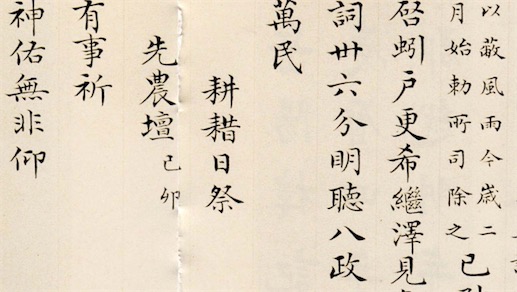 以蔽風雨今歲二
月始勅所司除之
已
啓蚓戶更希繼澤見
詞卅六分明聽八政
萬民
耕耤日祭
先農壇 己卯
有事祈
神佑無非仰